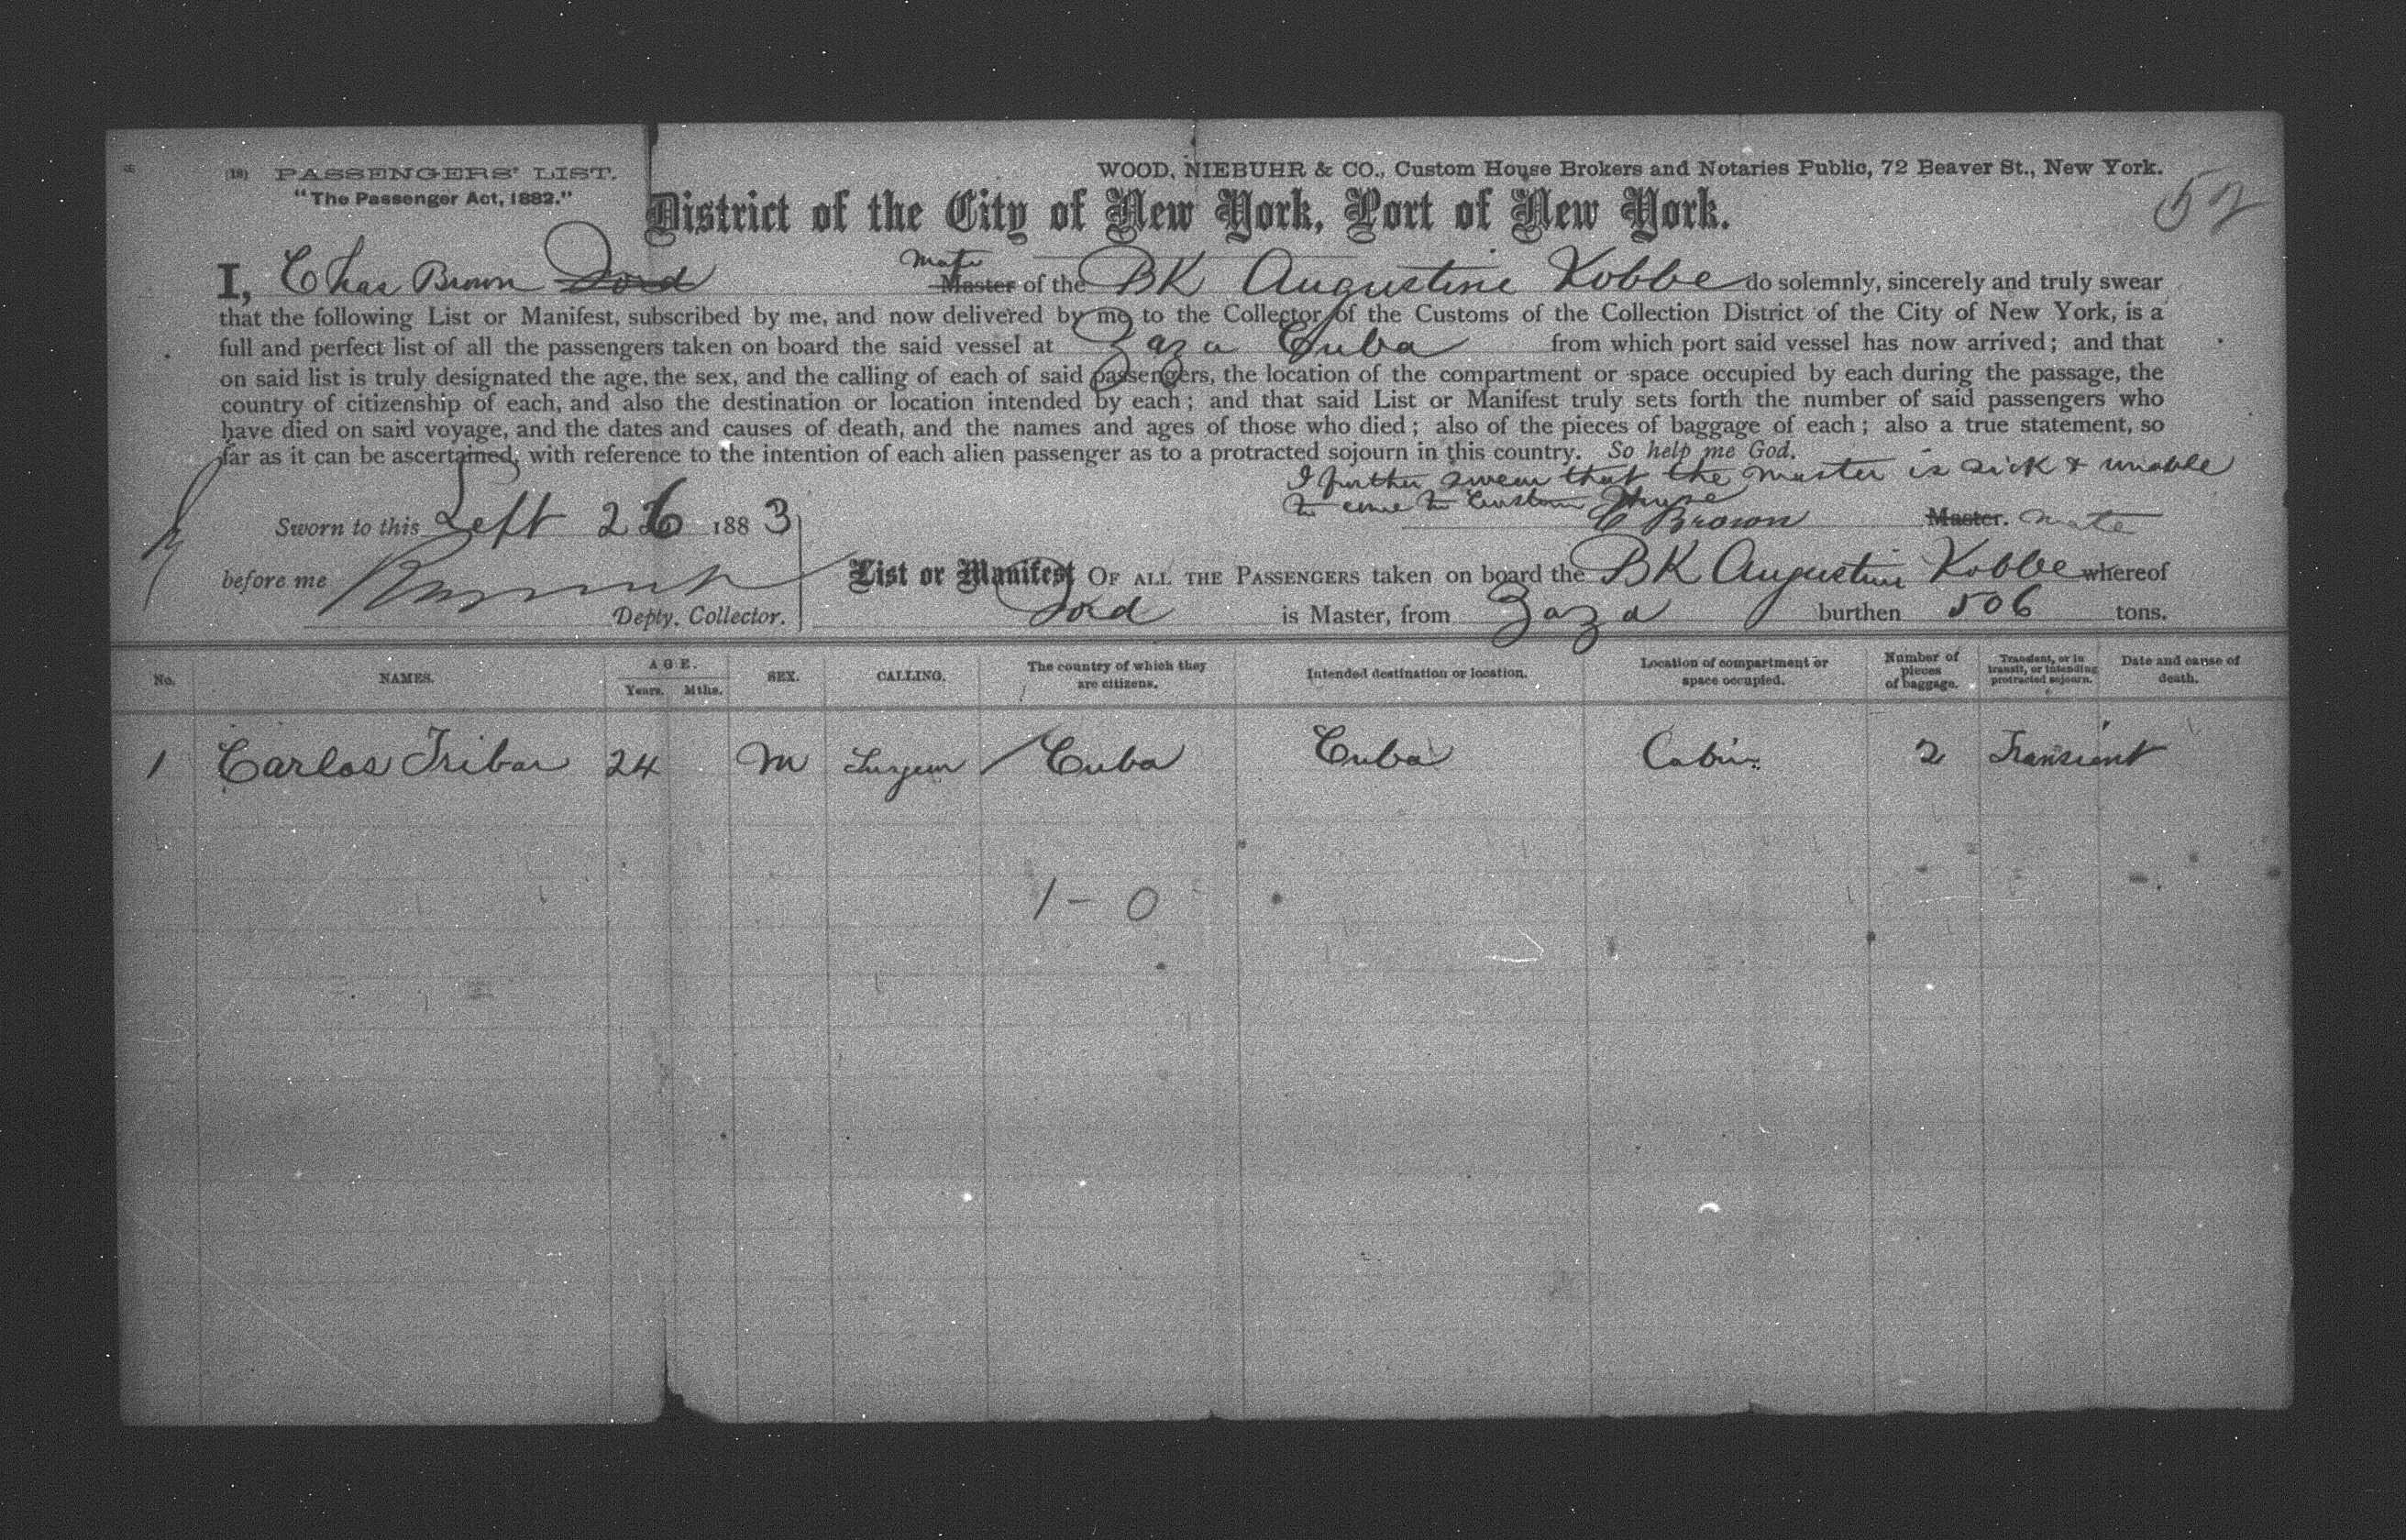 (18) PASSENGERS' LIST.
"The Passenger Act, 1882."
WOOD, NIEBUHR & CO., Custom House Brokers and Notaries Public, 72 Beaver St., New York.
52
District of the City of New York, Port of New York.
I, Chas Brown Ford Mate Master of the BK Augustine Kobbe do solemnly, sincerely and truly swear
that the following List or Manifest, subscribed by me, and now delivered by me to the Collector of the Customs of the Collection District of the City of New York, is a
full and perfect list of all the passengers taken on board the said vessel at Zaza Cuba from which port said vessel has now arrived; and that
on said list is truly designated the age, the sex, and the calling of each of said passengers, the location of the compartment or space occupied by each during the passage, the
country of citizenship of each, and also the destination or location intended by each; and that said List or Manifest truly sets forth the number of said passengers who
have died on said voyage, and the dates and causes of death, and the names and ages of those who died; also of the pieces of baggage of each; also a true statement, so
far as it can be ascertained, with reference to the intention of each alien passenger as to a protracted sojourn in this country. So help me God.
I further swear that the master is sick & unable
to come to Custom House
Sworn to this Sept 26 1883
C Brown Master. mate
before me
Depty. Collector.
List or Manifest OF ALL THE PASSENGERS taken on board the BK Augustine Kobbe whereof
Ford is Master, from Zaza burthen 506 tons.
No. NAMES. AGE. Years. Mths. SEX. CALLING. The country of which they are citizens. Intended destination or location. Location of compartment or space occupied. Number of pieces of baggage. Transient, or in transit, or intending protracted sojourn. Date and cause of death.
1 Carlos Tribar 24 M Surgeon Cuba Cuba Cabin 2 Transient
1 - 0